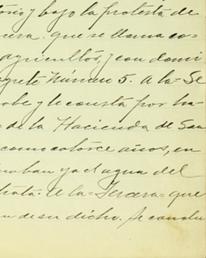 torio, y bajo la protesta de
cirsa. que se llama co
agricultór, y con domi
quito Número 5. A la Se
sabe y le consta por ha
de la Hacienda de San
como catorce años, en
maban ya el agua del
trata. A la Tercera: que
n de su dicho. Se conclu